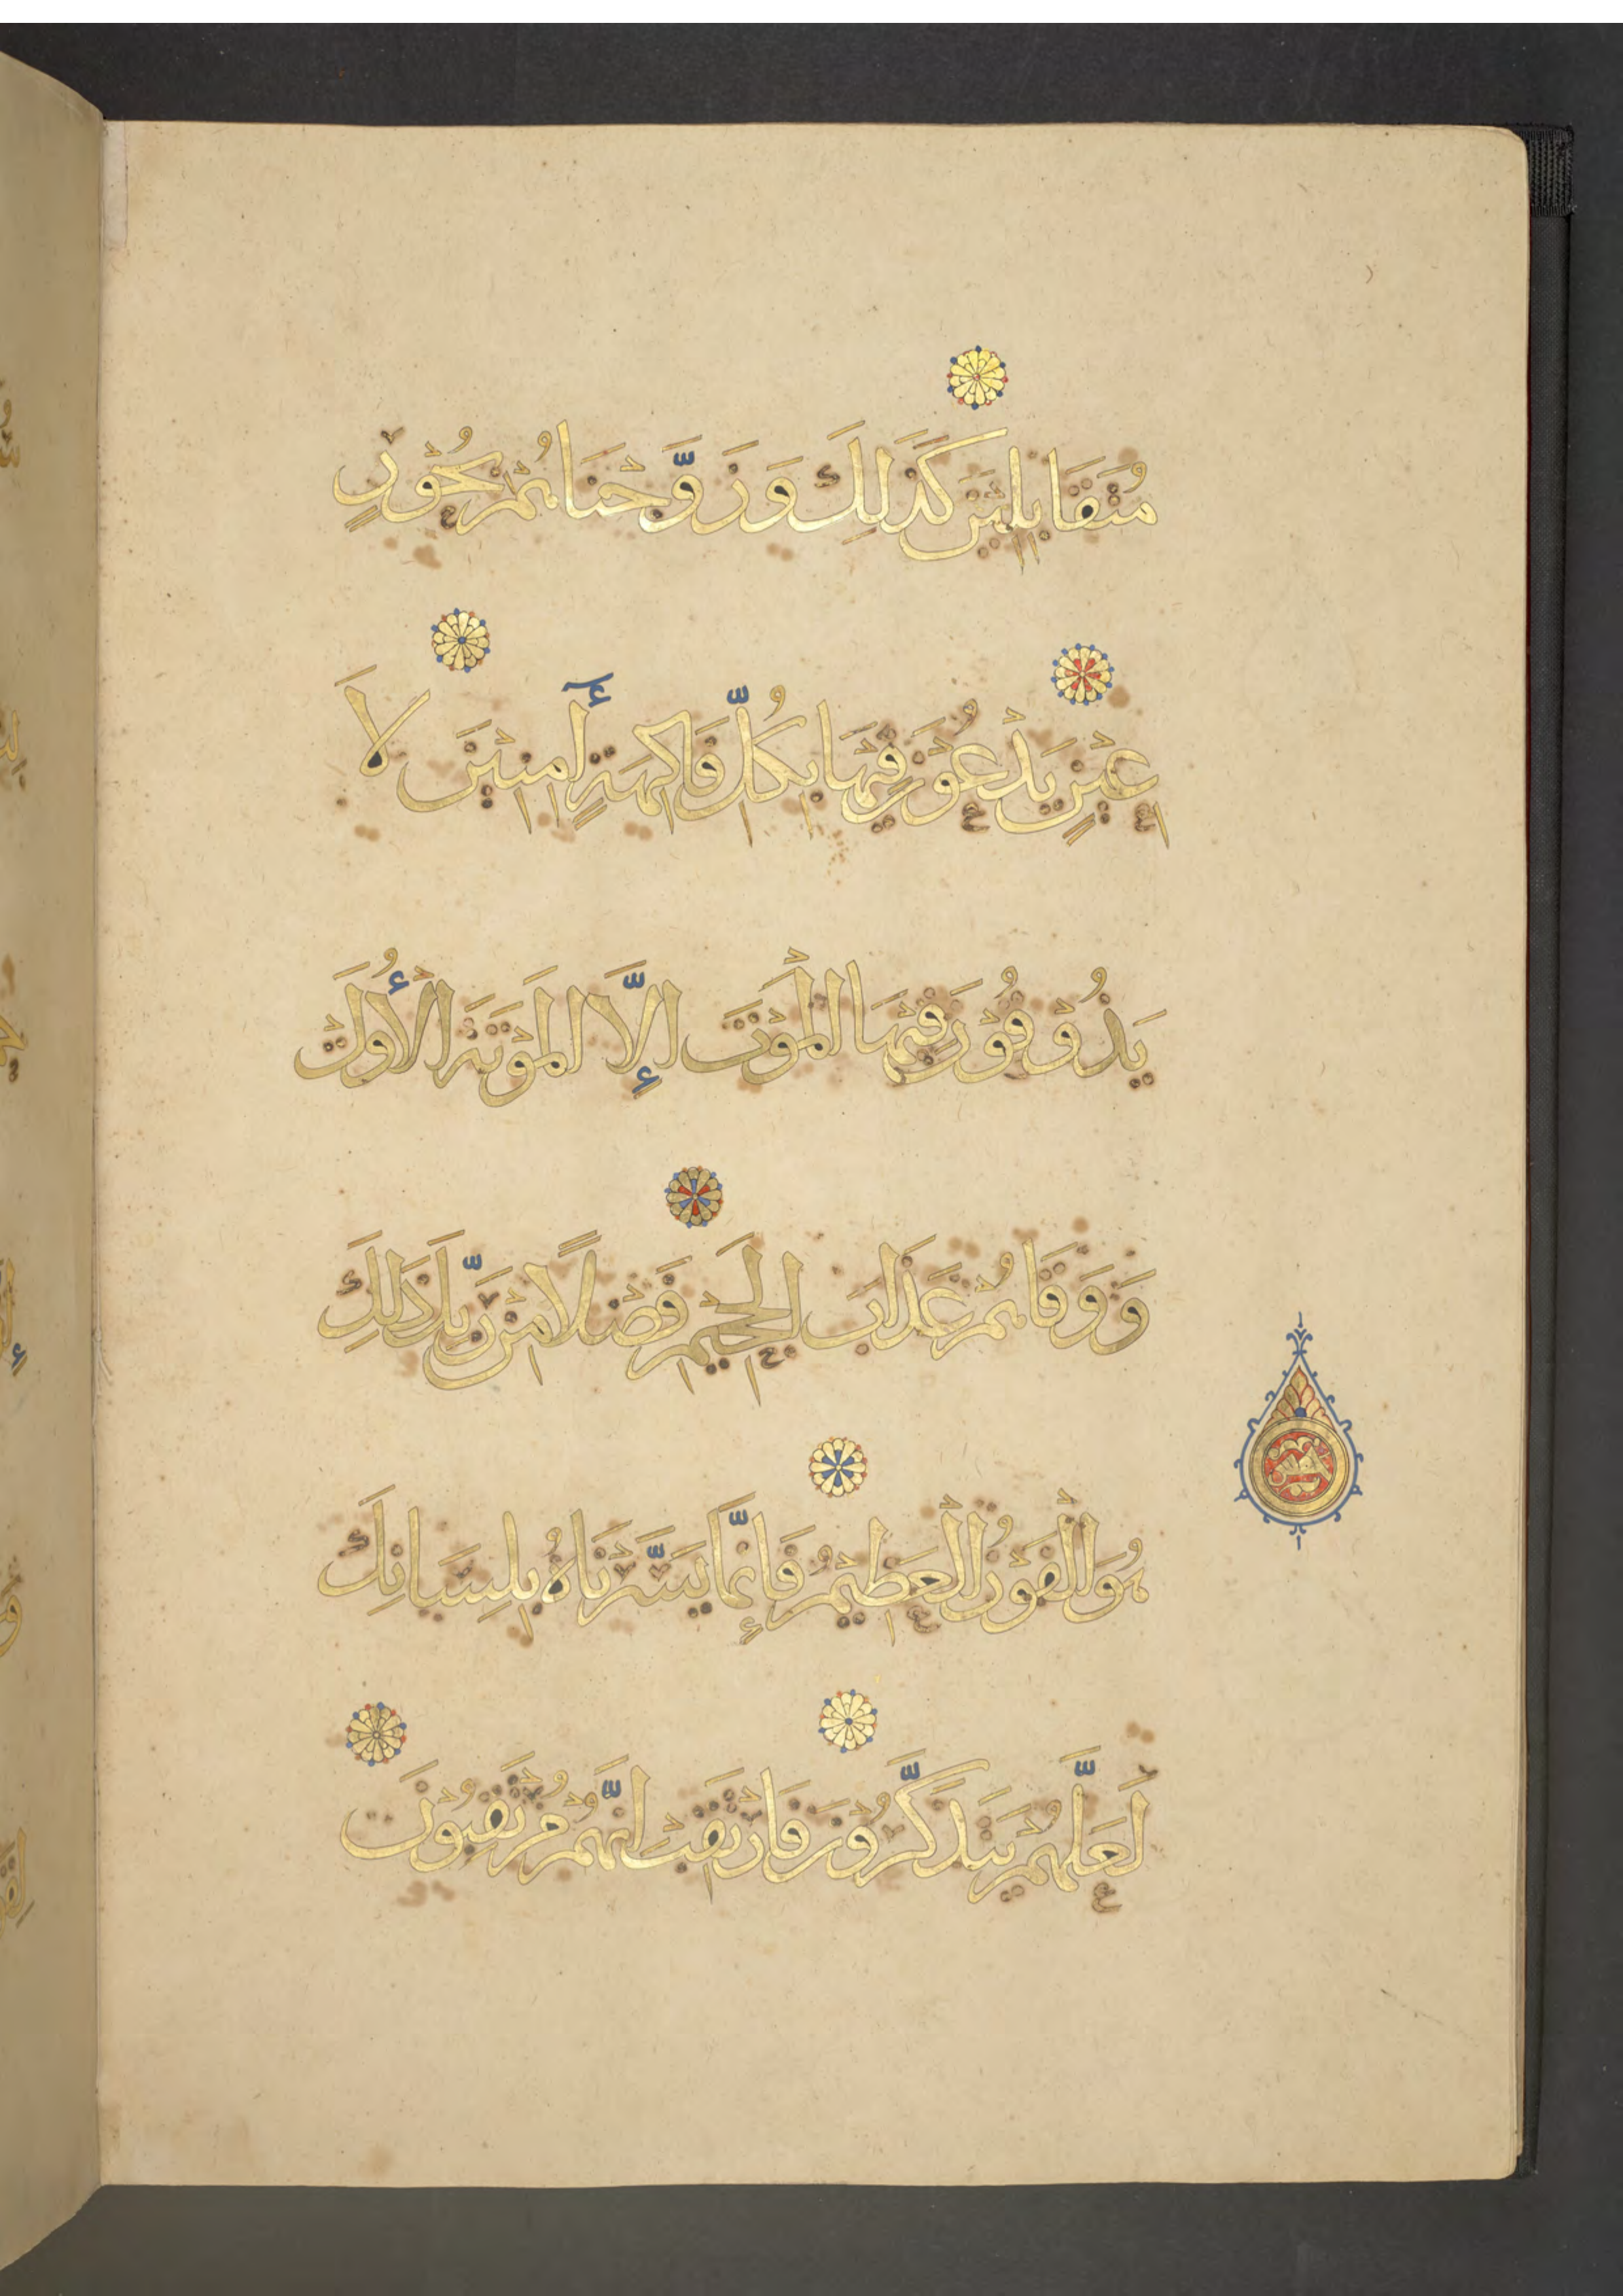 مُتَقَابِلِيْنَ كَذَلِكَ وَزَوَّجْنَاهُمْ بِحُوْرٍ
عِيْنٍ يَدْعُوْنَ فِيْهَا بِكُلِّ فَاكِهَةٍ أٰمِنِيْنَ لَا
يَذُوْقُوْنَ فِيْهَا الْمَوْتَ إِلَّا الْمَوْتَةَ الْأُوْلَى
وَوَقَاهُمْ عَذَابَ الْجَحِيْمِ فَضْلًا مِنْ رَبِّكَ ذَلِكَ
هُوَ الْفَوْزُ الْعَظِيْمُ فَإِنَّمَا يَسَّرْنَاهُ بِلِسَانِكَ
لَعَلَّهُمْ يَتَذَكَّرُوْنَ فَارْتَقِبْ اِنَّهُمْ مُرْتَقِبُوْنَ